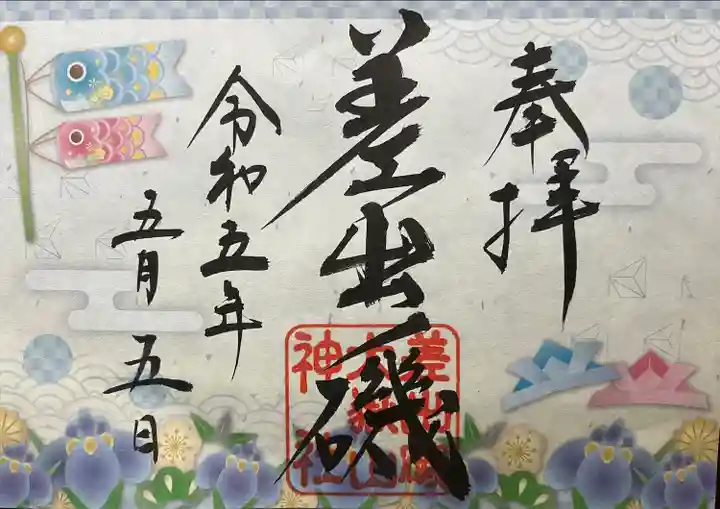 奉拝
差出ノ磯
令和五年
五月五日
差出磯
大嶽山
神社